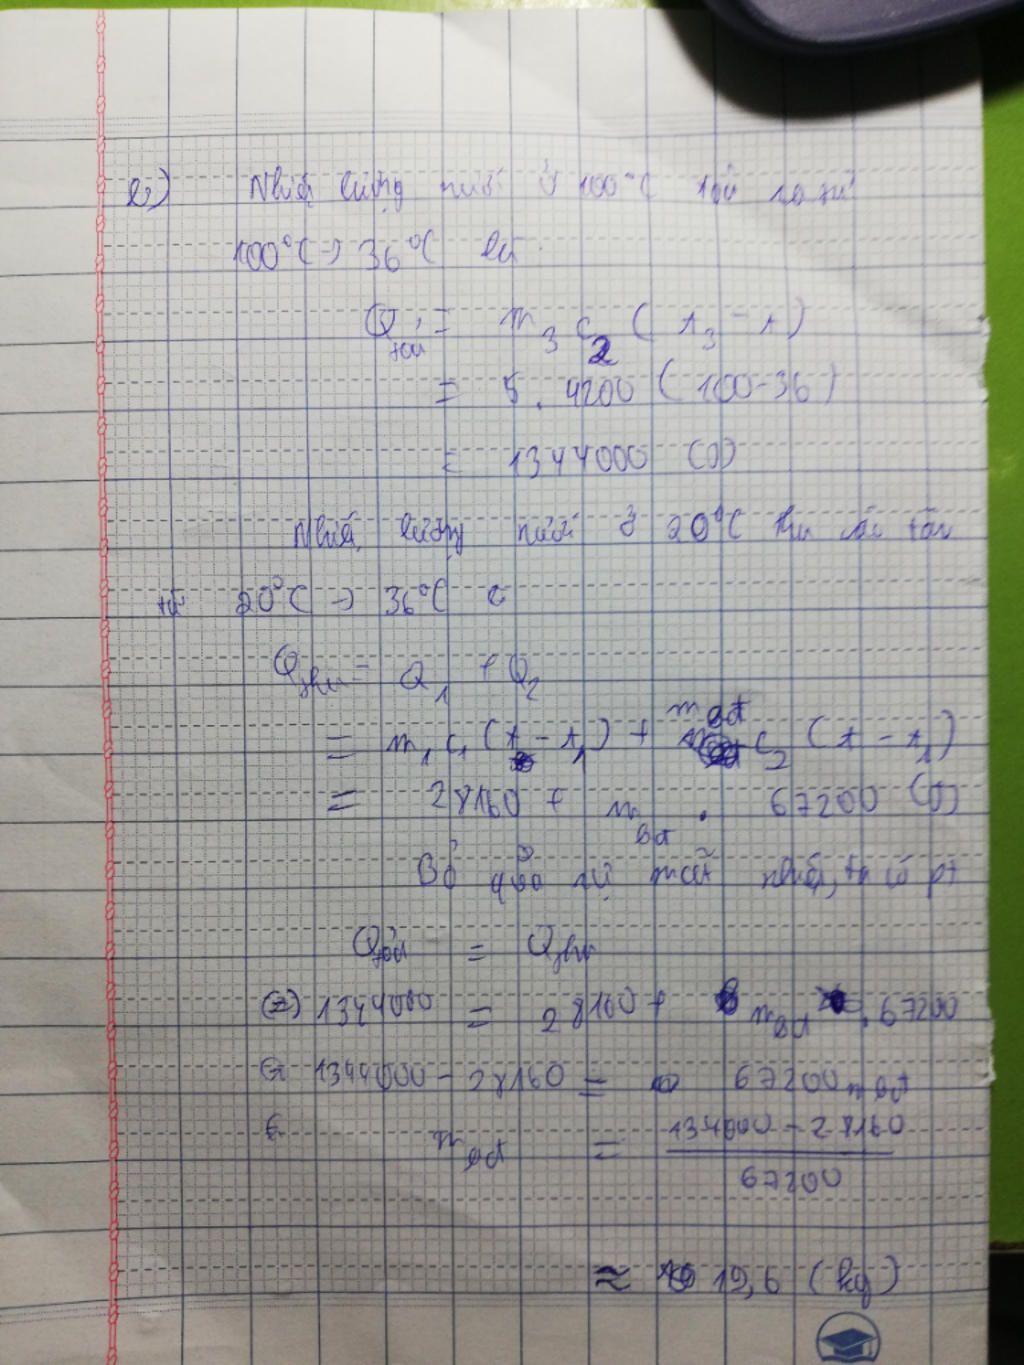 b) Nhiệt lượng nước ở 100°C toả ra từ
100°C → 36°C là
Q toả = m3 c2 (t3 - t)
= 5. 4200 (100-36)
= 1344000 (J)
Nhiệt lượng nước ở 20°C thu vào tăng
từ 20°C → 36°C
Qthu = Q1 + Q2
= m1 c1 (t - t1) + mbd c2 (t - t1)
= 28160 + mbd . 67200 (J)
Bỏ qua sự mất nhiệt, ta có pt
Qtoả = Qthu
(=) 1344000 = 28160 + mbd . 67200
1344000 - 28160 = 67200 mbd
mbd = 134000 - 28160
67200
≈ 19,6 (kg)